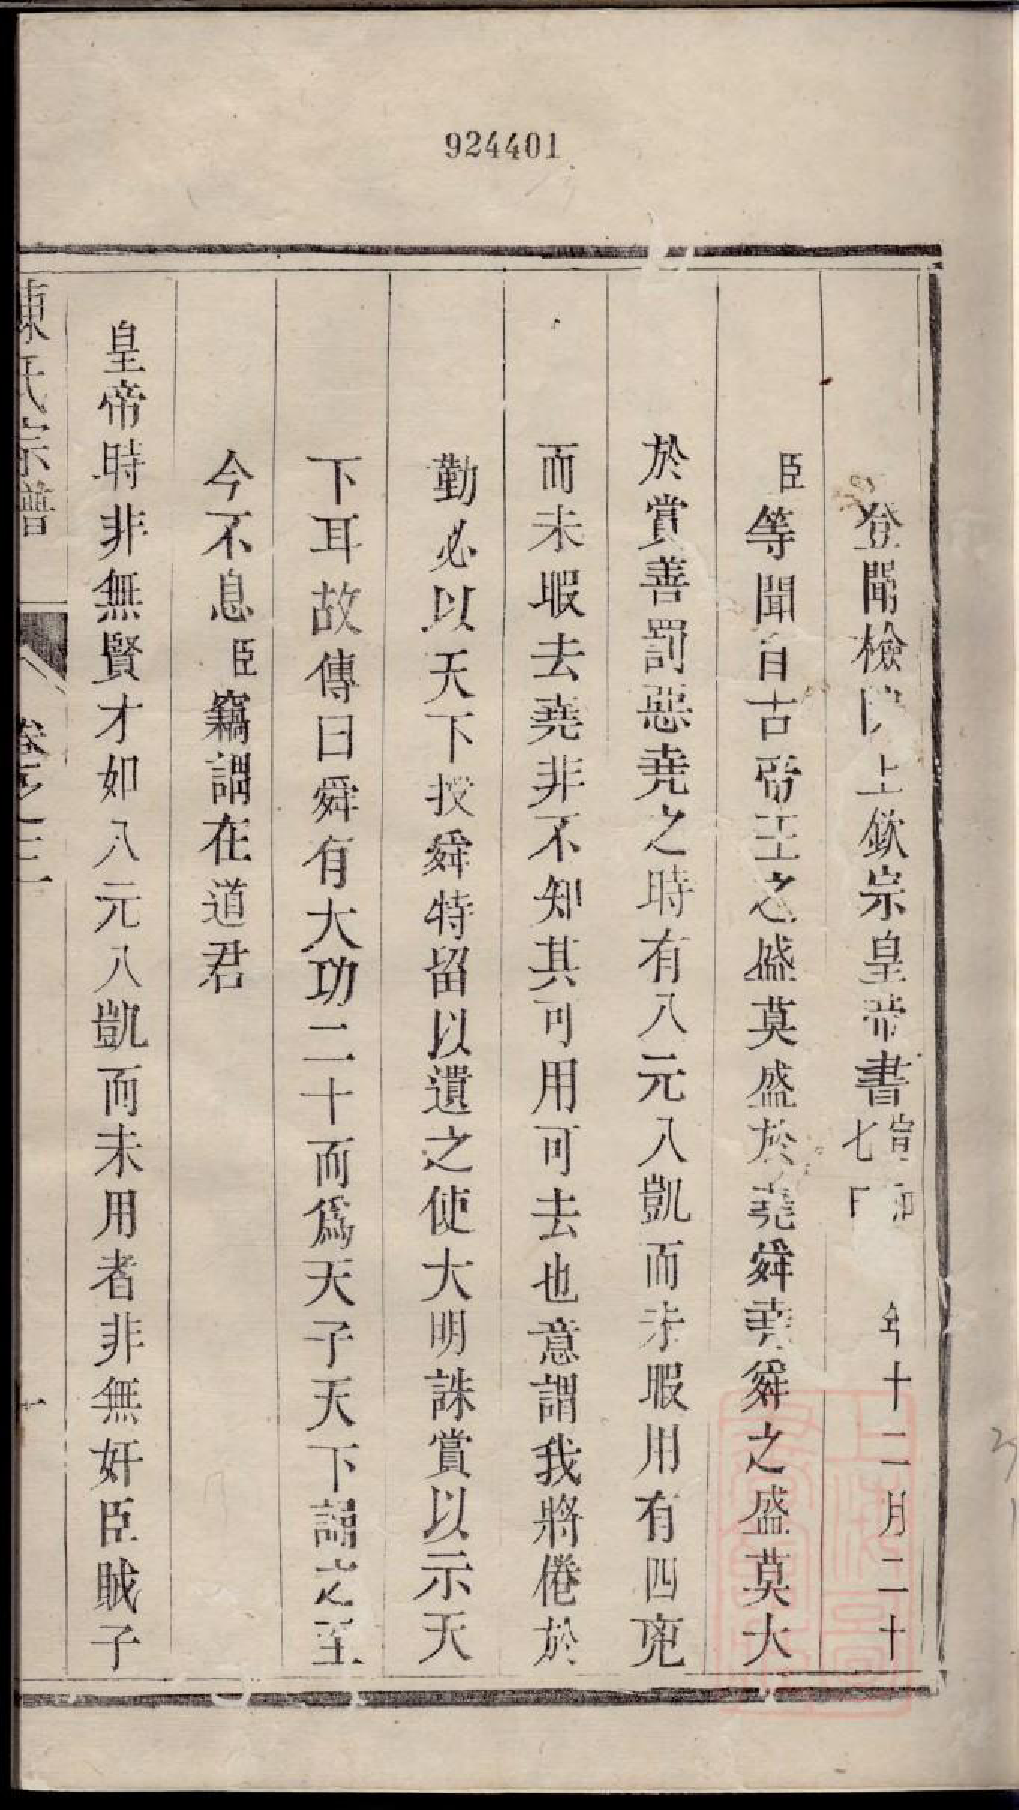 924401
登聞檢院上欽宗皇帝書 宣和 年十二月二十七日
臣等聞自古帝王之盛莫盛於堯舜堯舜之盛莫大
於賞善罰惡堯之時有八元八凱而未暇用有四兇
而未暇去堯非不知其可用可去也意謂我將倦於
勤必以天下授舜特留以遺之使大明誅賞以示天
下耳故傳曰舜有大功二十而為天子天下謂之至
今不息臣竊謂在道君
皇帝時非無賢才如八元八凱而未用者非無奸臣賊子
陳氏宗譜 卷之二 一